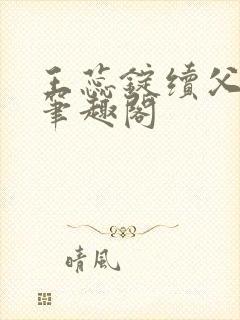 王蕊錠續父
筆趣閣
晴風